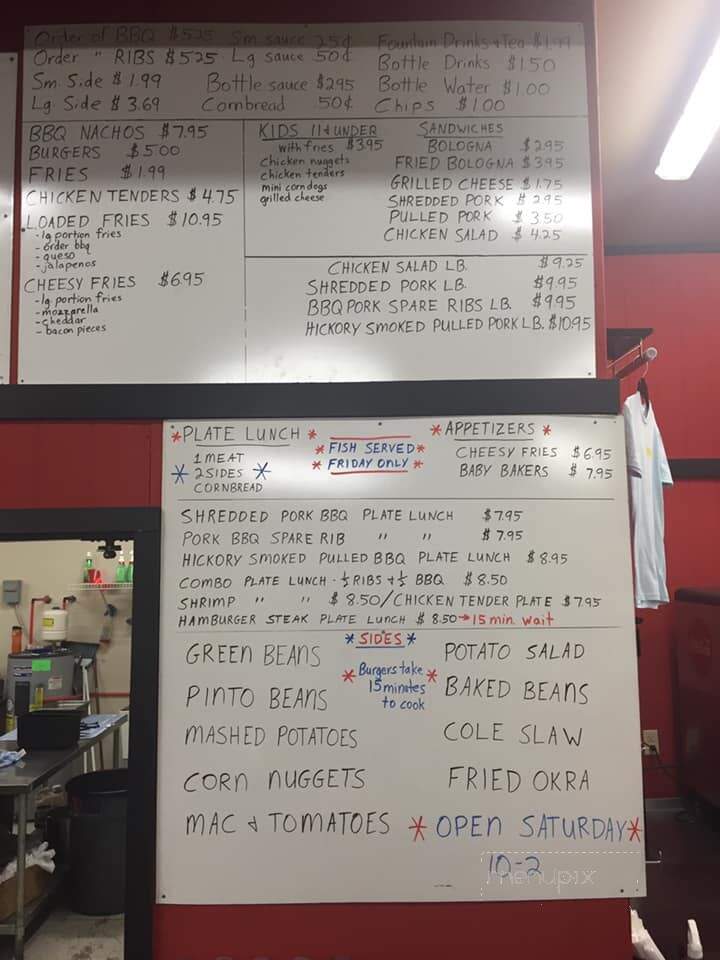 Order of BBQ $5.25 Sm sauce 25¢ Fountain Drinks & Tea $1.99
Order " RIBS $5.25 Lg sauce 50¢ Bottle Drinks $1.50
Sm. Side $1.99 Bottle sauce $2.95 Bottle Water $1.00
Lg. Side $3.69 Cornbread 50¢ Chips $1.00
BBQ NACHOS $7.95
BURGERS $5.00
FRIES $1.99
CHICKEN TENDERS $4.75
LOADED FRIES $10.95
-lg portion fries
-order bbq
-queso
-jalapenos
CHEESY FRIES $6.95
-lg portion fries
-mozzarella
-cheddar
-bacon pieces
KIDS 11 & UNDER
with fries $3.95
chicken nuggets
chicken tenders
mini corndogs
grilled cheese
SANDWICHES
BOLOGNA $2.95
FRIED BOLOGNA $3.95
GRILLED CHEESE $1.75
SHREDDED PORK $2.95
PULLED PORK $3.50
CHICKEN SALAD $4.25
CHICKEN SALAD LB. $9.25
SHREDDED PORK LB. $9.95
BBQ PORK SPARE RIBS LB. $9.95
HICKORY SMOKED PULLED PORK LB. $10.95
*PLATE LUNCH*
1 MEAT
*2 SIDES*
CORNBREAD
*FISH SERVED*
*FRIDAY ONLY*
*APPETIZERS*
CHEESY FRIES $6.95
BABY BAKERS $7.95
SHREDDED PORK BBQ PLATE LUNCH $7.95
PORK BBQ SPARE RIB " " $7.95
HICKORY SMOKED PULLED BBQ PLATE LUNCH $8.95
COMBO PLATE LUNCH - ½ RIBS + ½ BBQ $8.50
SHRIMP " " $8.50/CHICKEN TENDER PLATE $7.95
HAMBURGER STEAK PLATE LUNCH $8.50→15 min. wait
*SIDES*
*Burgers take*
15 minutes
to cook
GREEN BEANS
PINTO BEANS
MASHED POTATOES
CORN NUGGETS
MAC & TOMATOES
POTATO SALAD
BAKED BEANS
COLE SLAW
FRIED OKRA
*OPEN SATURDAY*
10-2
menupix